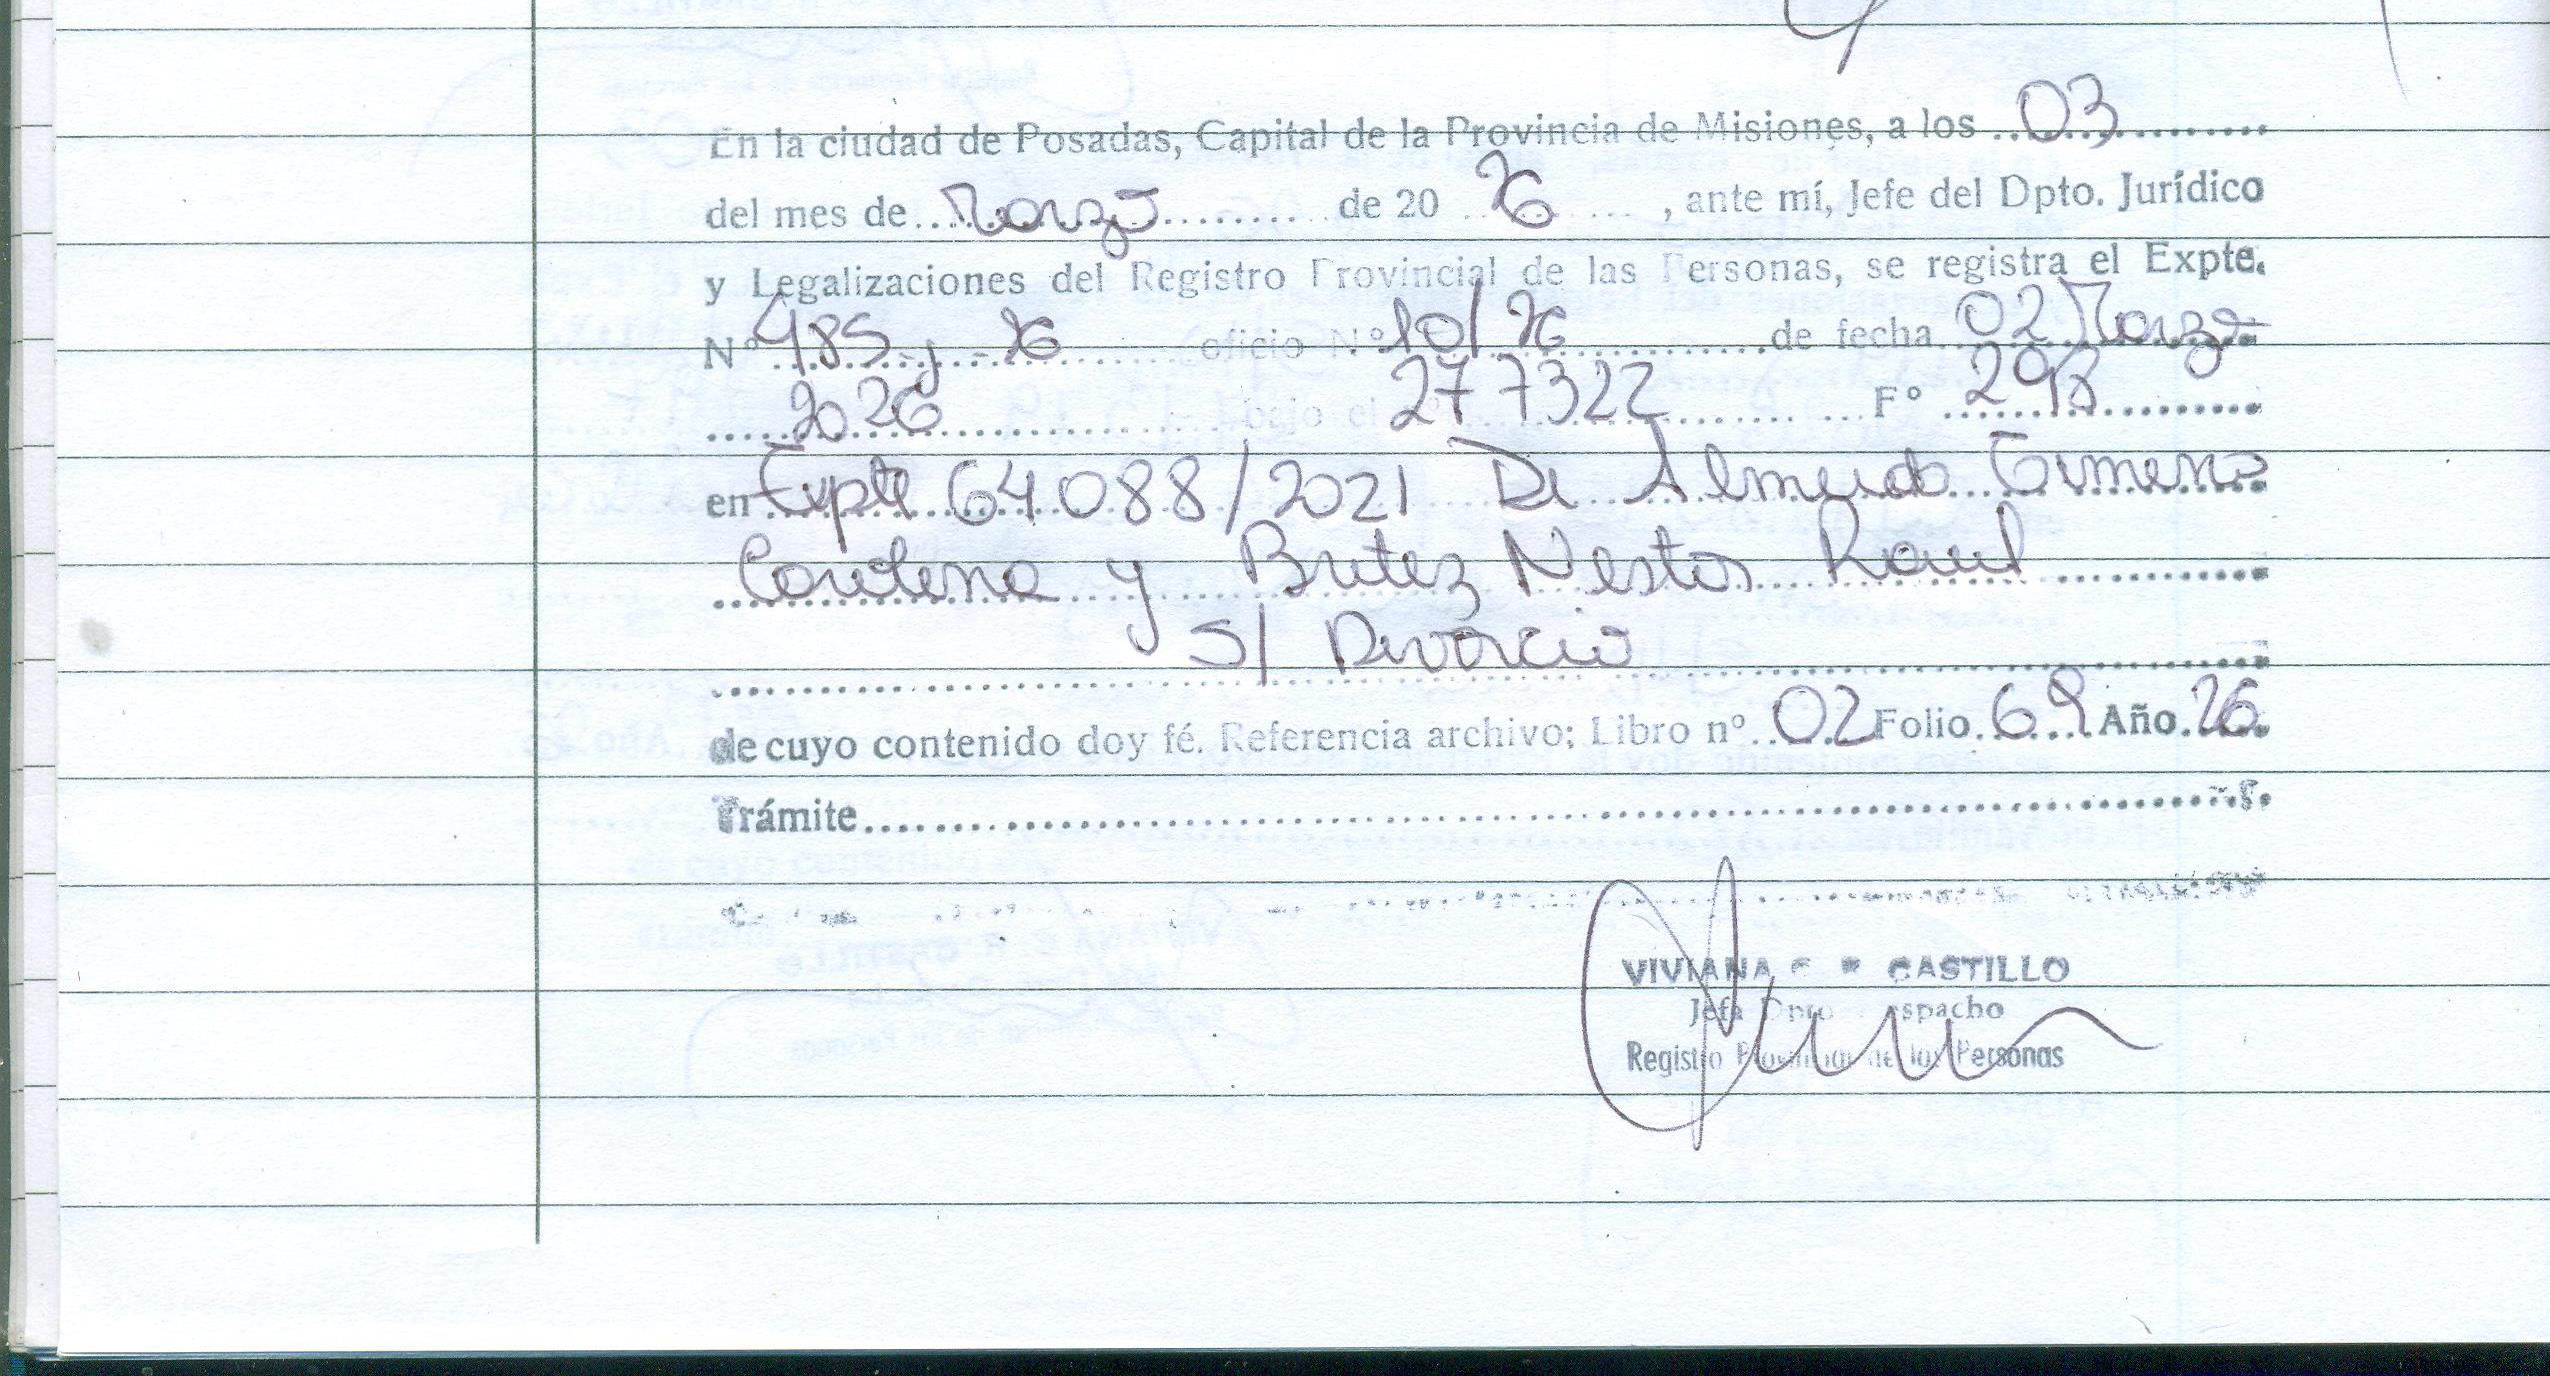 En la ciudad de Posadas, Capital de la Provincia de Misiones, a los 03
del mes de Marzo de 20 26, ante mí, Jefe del Dpto. Jurídico
y Legalizaciones del Registro Provincial de las Personas, se registra el Expte.
N° 485-J-26 oficio N° 10/26 de fecha 02 Marzo
2026 bajo el n° 277322 F° 298
en Expte 64088/2021 De Almeida Gimena
y Britez Nestor Raul
S/ Divorcio
de cuyo contenido doy fé. Referencia archivo; Libro nº 02 Folio 69 Año 26
Trámite
VIVIANA CASTILLO
Jefa Dpto Despacho
Registro Provincial de las Personas